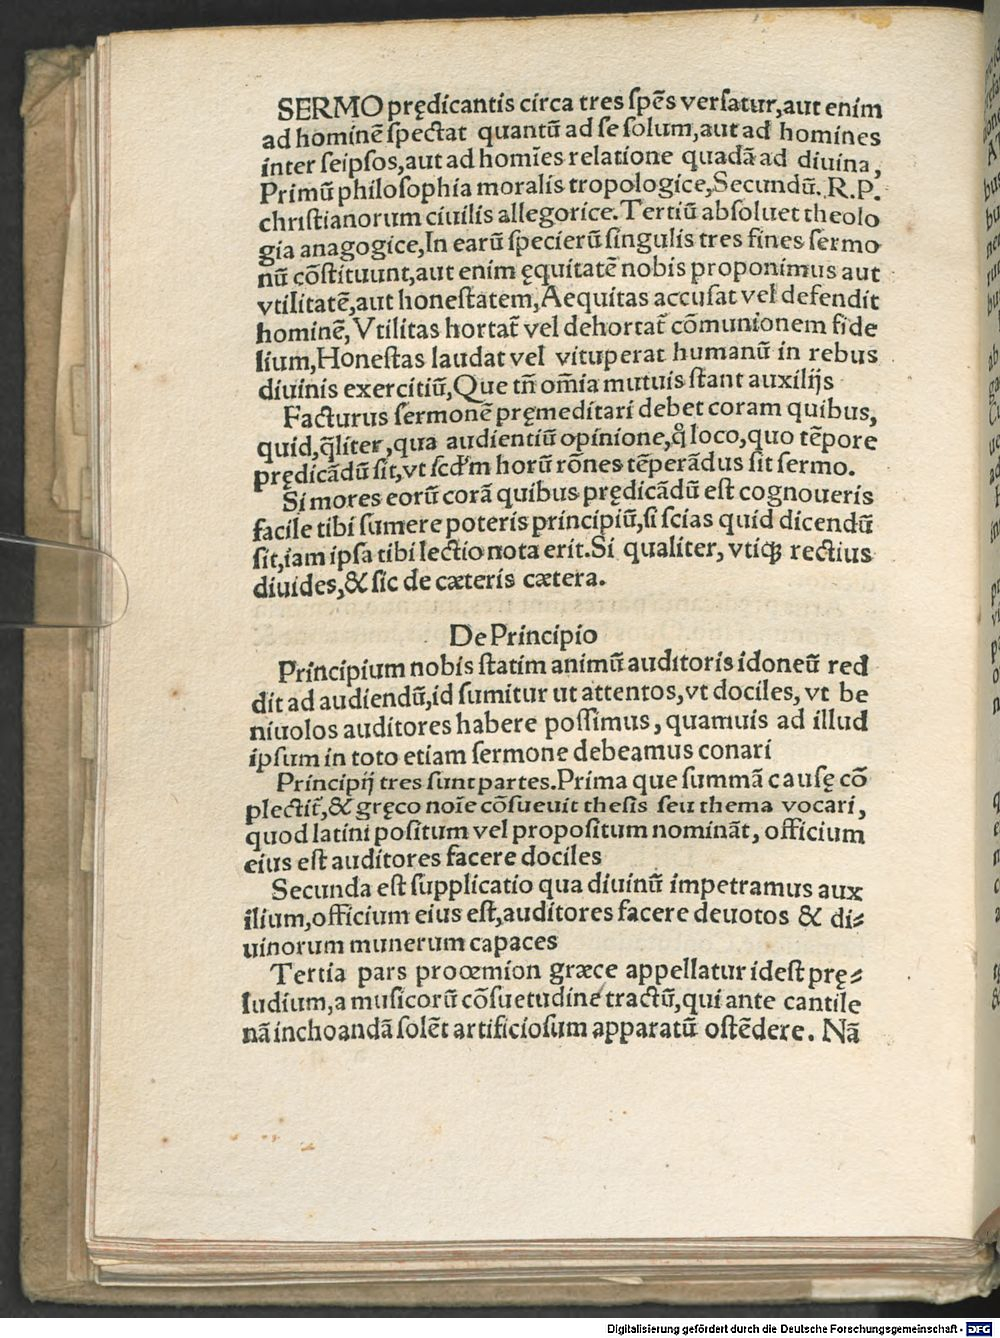 SERMO prędicantis circa tres ſpēs verſatur,aut enim
ad hominē ſpectat quantū ad ſe ſolum,aut ad homines
inter ſeipſos,aut ad homīes relatione quadā ad diuina,
Primū philoſophia moralis tropologice,Secundū. R.P.
chriſtianorum ciuilis allegorice.Tertiū abſoluet theolo
gia anagogice,In earū ſpecierū ſingulis tres fines ſermo
nū cōſtituunt,aut enim ęquitatē nobis proponimus aut
vtilitatē,aut honeſtatem,Aequitas accuſat vel defendit
hominē,Vtilitas hortat̄ vel dehortat̄ cōmunionem fide
lium,Honeſtas laudat vel vituperat humanū in rebus
diuinis exercitiū,Que tn̄ om̄ia mutuis ſtant auxilijs
Facturus ſermonē pręmeditari debet coram quibus,
quid,q̄liter,qua audientiū opinione,q̊ loco,quo tēpore
prędicādū ſit,vt ſcd'm horū rōnes tēperādus ſit ſermo.
Si mores eorū corā quibus prędicādū eſt cognoueris
facile tibi ſumere poteris principiū,ſi ſcias quid dicendū
ſit,iam ipſa tibi lectio nota erit.Si qualiter, vtiqȝ rectius
diuides,& ſic de cæteris cætera.
De Principio
Principium nobis ſtatim animū auditoris idoneū red
dit ad audiendū,id ſumitur ut attentos,vt dociles, vt be
niuolos auditores habere poſſimus, quamuis ad illud
ipſum in toto etiam ſermone debeamus conari
Principij tres ſunt partes.Prima que ſummā cauſę cō
plectit̄,& gręco noīe cōſueuit theſis ſeu thema vocari,
quod latini poſitum vel propoſitum nomināt, officium
eius eſt auditores facere dociles
Secunda eſt ſupplicatio qua diuinū impetramus aux
ilium,officium eius eſt,auditores facere deuotos & di⸗
uinorum munerum capaces
Tertia pars proœmion græce appellatur ideſt prę⸗
ludium,a muſicorū cōſuetudine tractū,qui ante cantile
nā inchoandā ſolēt artificioſum apparatū oſtēdere. Nā
Digitalisierung gefördert durch die Deutsche Forschungsgemeinschaft - DFG